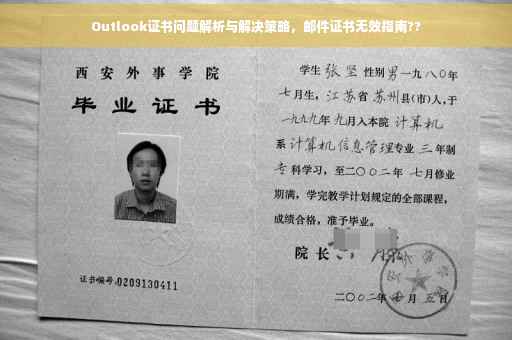 Outlook证书问题解析与解决策略，邮件证书无效指南??
西安外事学院
毕业证书
证书编号:0209130411
学生 张坚 性别男一九八〇年
七月生，江苏省苏州县(市)人，于
一九九九年九月入本院 计算机
系计算机信息管理专业 三 年制
专科学习，至二〇〇二年 七月修业
期满，学完教学计划规定的全部课程，
成绩合格，准予毕业。
院长
二〇〇二年 月五日